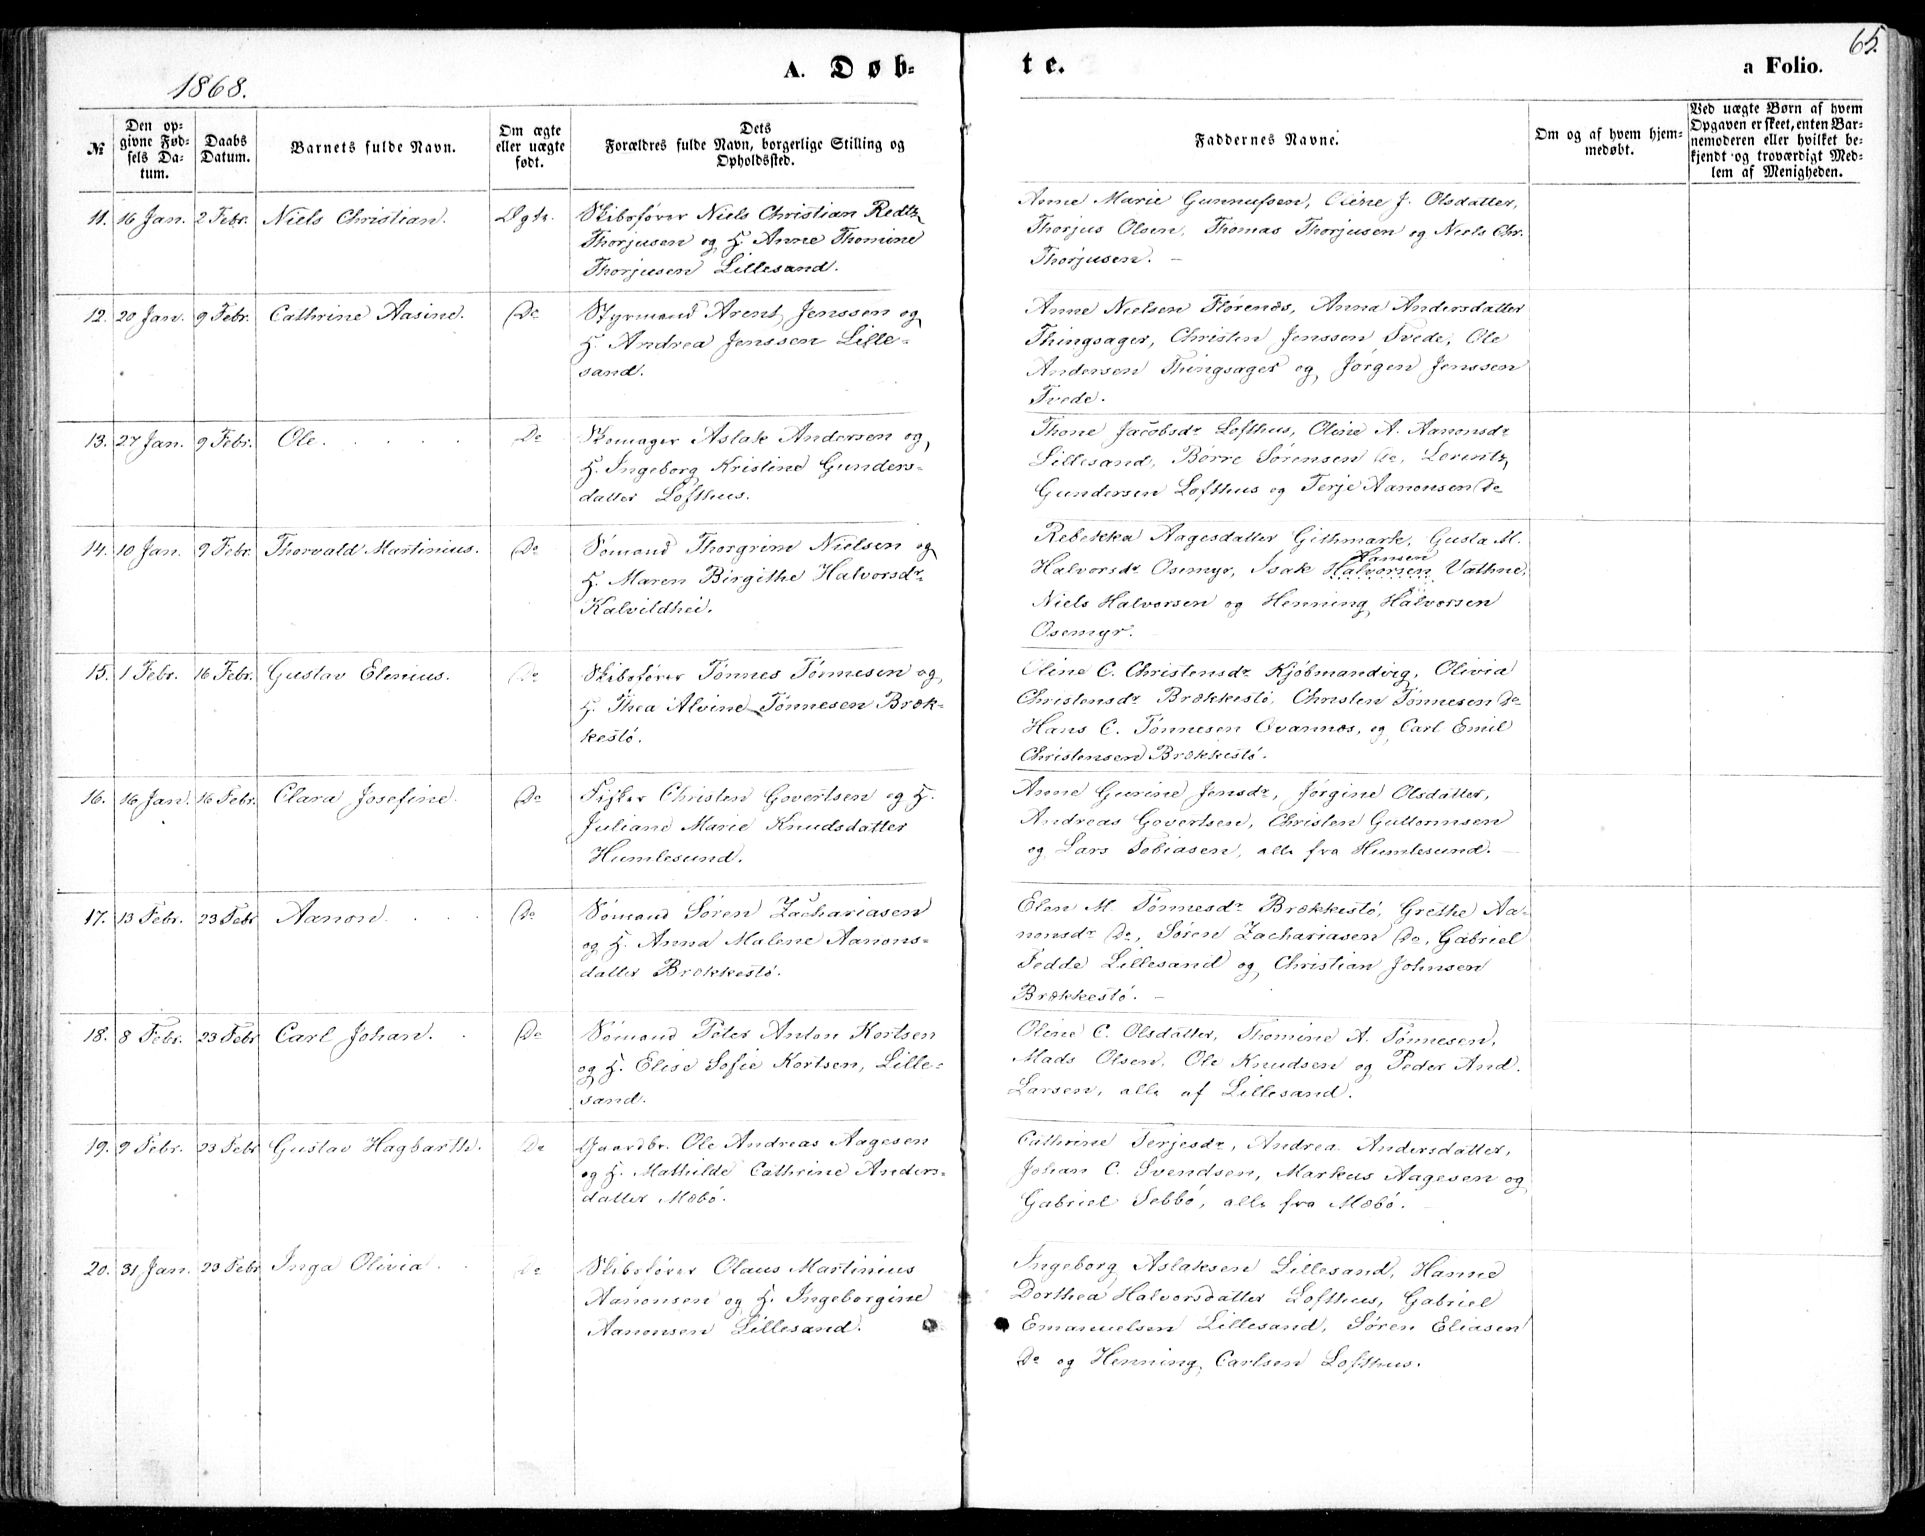 65.
1868.
A. Døb-
te.
a Folio.
№
Den op-
givne Fød-
sels Da-
tum.
Daabs
Datum.
Barnets fulde Navn.
Om ægte
eller uægte
født.
Dets
Forældres fulde Navn, borgerlige Stilling og
Opholdssted.
Faddernes Navne.
Om og af hvem hjem-
medøbt.
Ved uægte Børn af hvem
Opgaven er skeet, enten Bar-
nemoderen eller hvilket be-
kjendt og troværdigt Med-
lem af Menigheden.
11. 16 Jan. 2 Febr. Niels Christian. Ægte. Skibsfører Niels Christian Redtz
Thorjusen og H. Anne Thomine
Thorjusen Lillesand.
Anne Marie Gunnufsen, J. Olsdatter,
Thorjus Olsen, Thomas Thorjusen og Niels Chr.
Thorjusen. –
12. 20 Jan. 9 Febr. Cathrine Aasine. Do Styrmand Arent Jenssen og
H. Andrea Jenssen Lille-
sand.
Anne Nielsen Florenæs, Anna Andersdatter
Thingsager, Christen Jenssen Tvede, Ole
Andersen Thingsager og Jørgen Jenssen
Tvede.
13. 27 Jan. 9 Febr. Ole. Do Skomager Aslak Andersen og
H. Ingeborg Kristine Gunders-
datter Lofthus.
Thone Jacobsdr Lofthus, Oline A. Aanonsdr
Lillesand, Børre Sørensen do, Lorentz
Gundersen Lofthus og Terje Aanonsen do
14. 10 Jan. 9 Febr. Thorvald Martinius. Do Sømand Thorgrim Nielsen og
H. Maren Birgithe Halvorsdr
Kalvildhei.
Rebekka Aagesdatter Githmark, Gusta M.
Hansen
Halvorsdr Osemyr, Isak Halvorsen Vathne,
Niels Halvorsen og Henning Halvorsen
Osemyr.
15. 1 Febr. 16 Febr. Gustav Elenius. Do Skibsfører Tønnes Tønnesen og
H. Thea Alvine Tønnesen Bræk-
kestø.
Oline C. Christensdr Kjøbmandvig, Olivia
Christensdr Brækkestø, Christen Tønnesen do
Hans C. Tønnesen Ovannæs, og Carl Emil
Christensen Brækkestø.
16. 16 Jan. 16 Febr. Clara Josefine. Do Fisker Christen Govertsen og H.
Juliane Marie Knudsdatter
Humlesund.
Anne Gurine Jensdr, Jørgine Olsdatter,
Andreas Govertsen, Christen Guttormsen
og Lars Tobiasen, alle fra Humlesund. –
17. 13 Febr. 23 Febr Aanon. Do Sømand Søren Zachariasen
og H. Anna Malene Aanons-
datter Brækkestø.
Elen M. Tønnesdr Brækkestø, Grethe Aa-
nonsdr do, Søren Zachariasen do, Gabriel
Fedde Lillesand og Christian Johnsen
Brækkestø. –
18. 8 Febr. 23 Febr Carl Johan. Do Sømand Peter Anton Kortsen
og H. Elise Sofie Kortsen, Lille-
sand.
Oline C. Olsdatter, Thomine A. Tønnesen,
Mads Olsen, Ole Knudsen og Peder And.
Larsen, alle af Lillesand.
19. 9 Febr. 23 Febr Gustav Hagbarth. Do Gaardbr. Ole Andreas Aagesen
og H. Mathilde Cathrine Anders-
datter Møbø.
Cathrine Terjesdr, Andrea Andersdatter,
Johan C. Svendsen, Markus Aagesen og
Gabriel Sebbø, alle fra Møbø.
20. 31 Jan. 23 Febr Inga Olivia. Do Skibsfører Olaus Martinius
Aanonsen og H. Ingeborgine
Aanonsen Lillesand.
Ingeborg Aslaksen Lillesand, Hanne
Dorthea Halvorsdatter Lofthus, Gabriel
Emanuelsen Lillesand, Søren Eliasen
do og Henning Carlsen Lofthus.